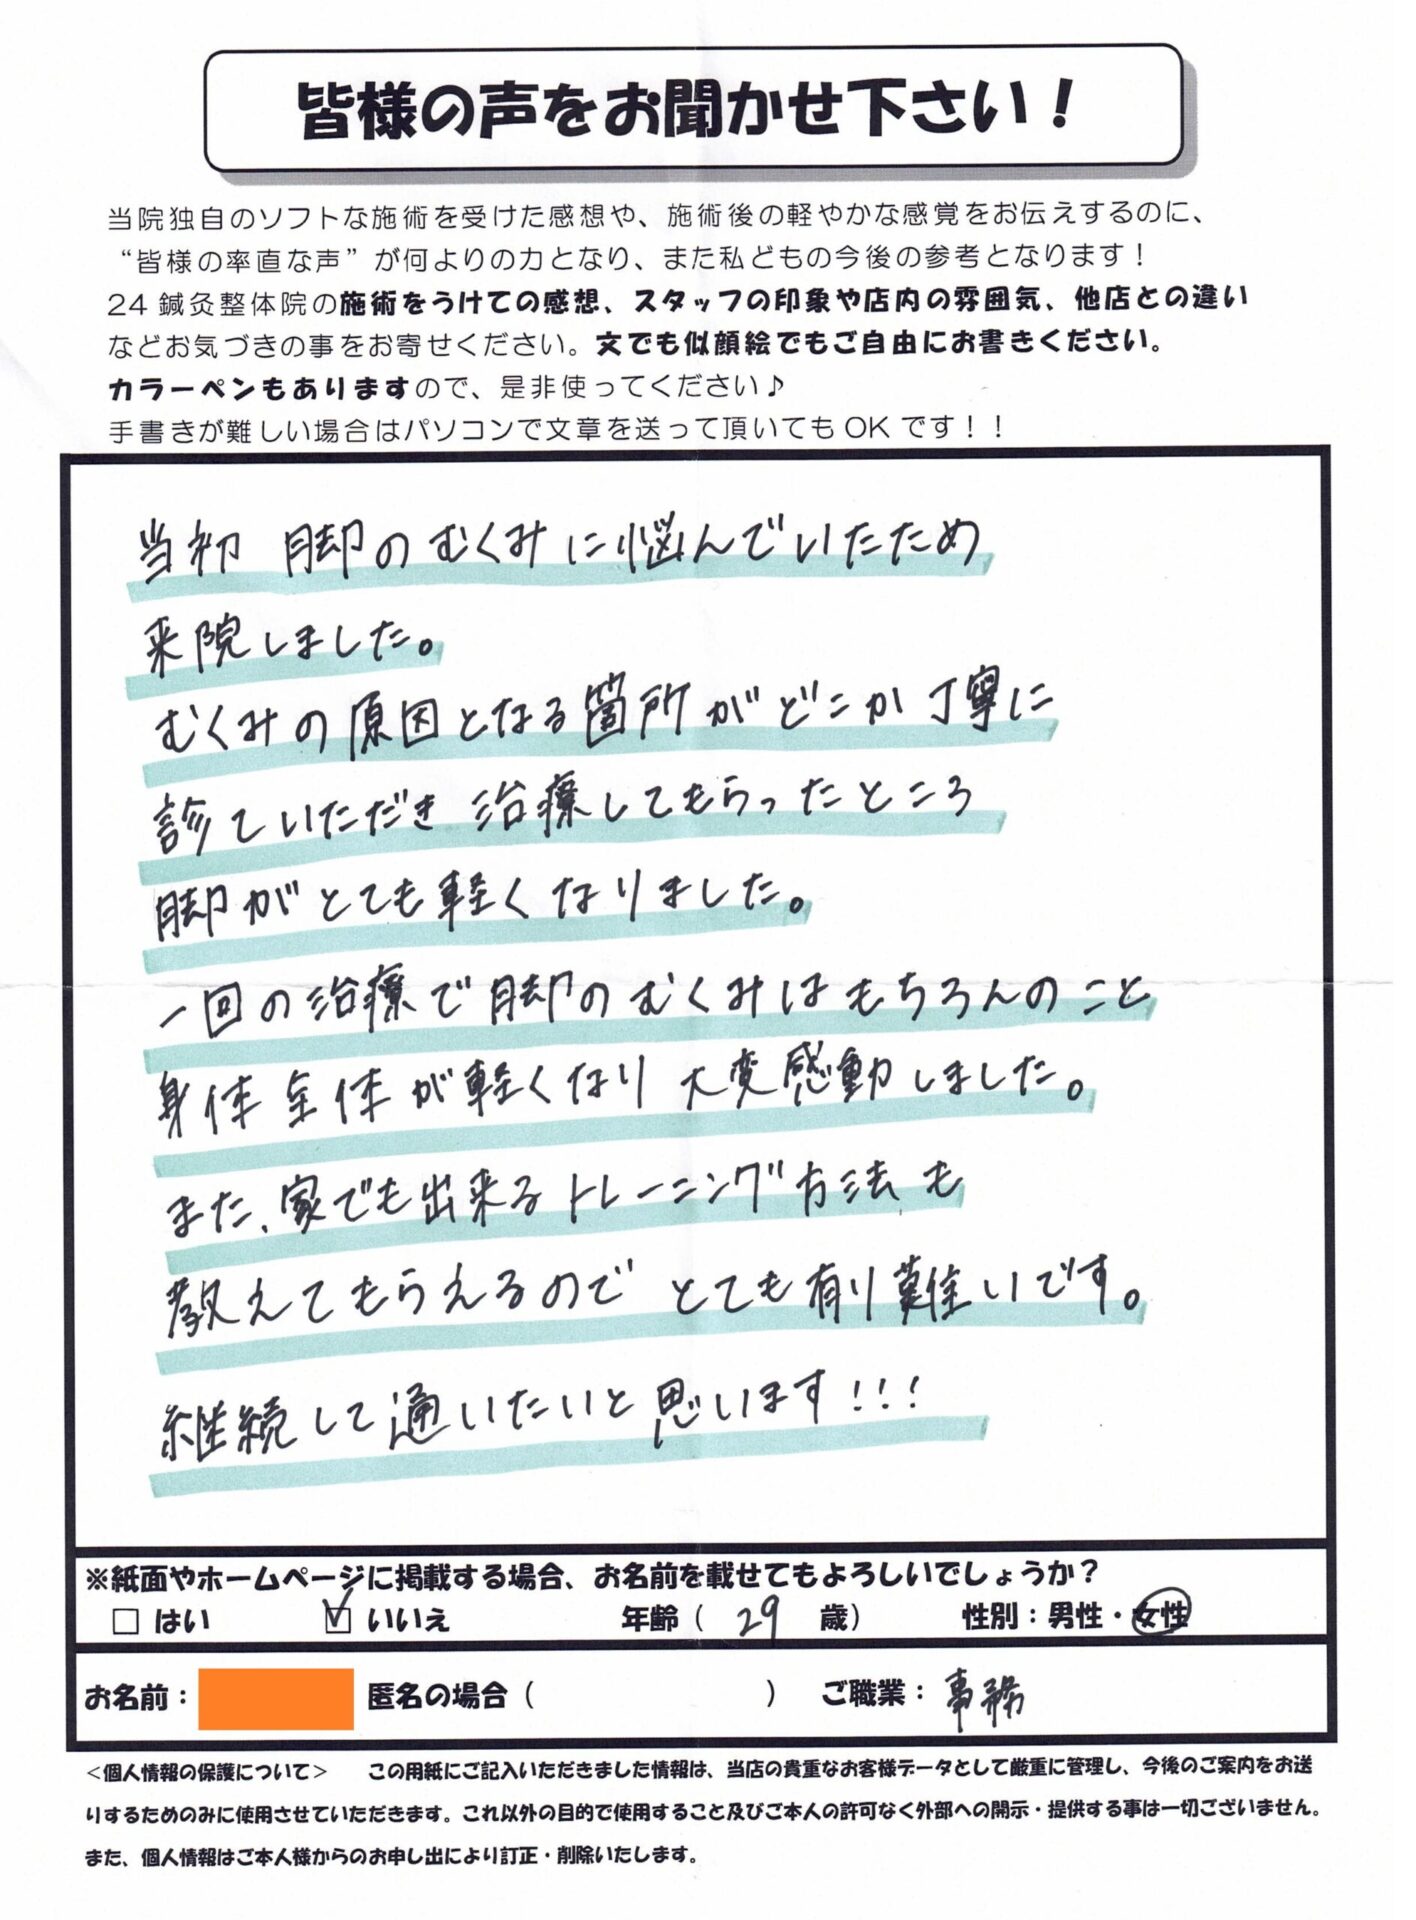 皆様の声をお聞かせ下さい！
当院独自のソフトな施術を受けた感想や、施術後の軽やかな感覚をお伝えするのに、
“皆様の率直な声”が何よりの力となり、また私どもの今後の参考となります！
24鍼灸整体院の施術をうけての感想、スタッフの印象や店内の雰囲気、他店との違い
などお気づきの事をお寄せください。文でも似顔絵でもご自由にお書きください。
カラーペンもありますので、是非使ってください♪
手書きが難しい場合はパソコンで文章を送って頂いてもOKです！！
当初 脚のむくみに悩んでいたため
来院しました。
むくみの原因となる箇所がどこか丁寧に
診ていただき 治療してもらったところ
脚がとても軽くなりました。
一回の治療で脚のむくみはもちろんのこと
身体全体が軽くなり 大変感動しました。
また、家でも出来るトレーニング方法も
教えてもらえるので とても有り難いです。
継続して通いたいと思います!!!
※紙面やホームページに掲載する場合、お名前を載せてもよろしいでしょうか？
□ はい ☑ いいえ 年齢（ 29 歳） 性別：男性・女性
お名前： 匿名の場合（ ） ご職業：事務
＜個人情報の保護について＞ この用紙にご記入いただきました情報は、当店の貴重なお客様データとして厳重に管理し、今後のご案内をお送
りするためのみに使用させていただきます。これ以外の目的で使用すること及びご本人の許可なく外部への開示・提供する事は一切ございません。
また、個人情報はご本人様からのお申し出により訂正・削除いたします。